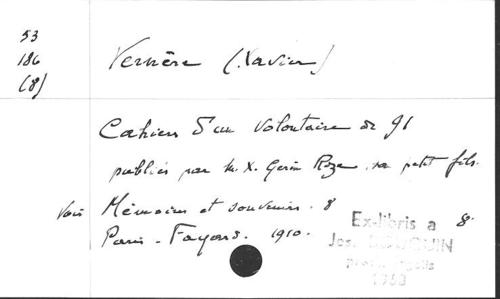 53
186
(8)
Vernère (Xavier)
Cahiers d'un volontaire de 91
publiés par M. X. Gerin Roze, son petit fils.
Voir Mémoires et souvenirs. 8
8.
Paris - Fayard. 1910.
Ex-libris a
Jos.
1960